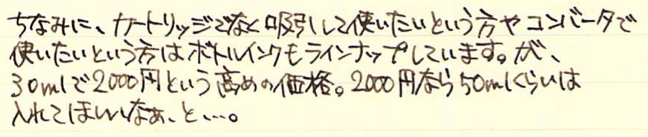 ちなみに、カートリッジでなく吸引して使いたいという方やコンバータで
使いたいという方はボトルインクもラインナップしています。が、
30mlで2000円という高めの価格。2000円なら50mlくらいは
入れてほしいなぁ、と…。